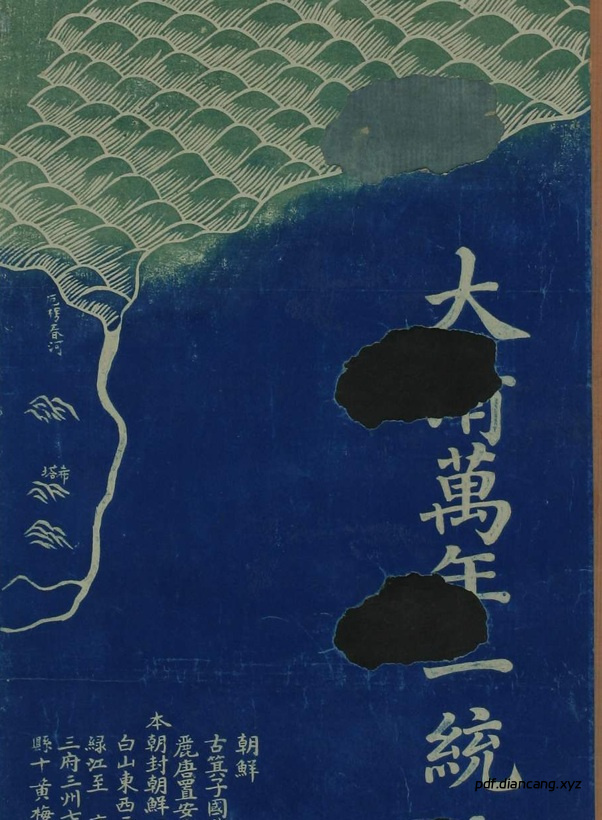 大萬年一統
朝鮮
古箕子國
麗唐置安
本朝封朝鮮
白山東西
綠江至
三府三州
縣十黃梅
pdf.diancang.xyz